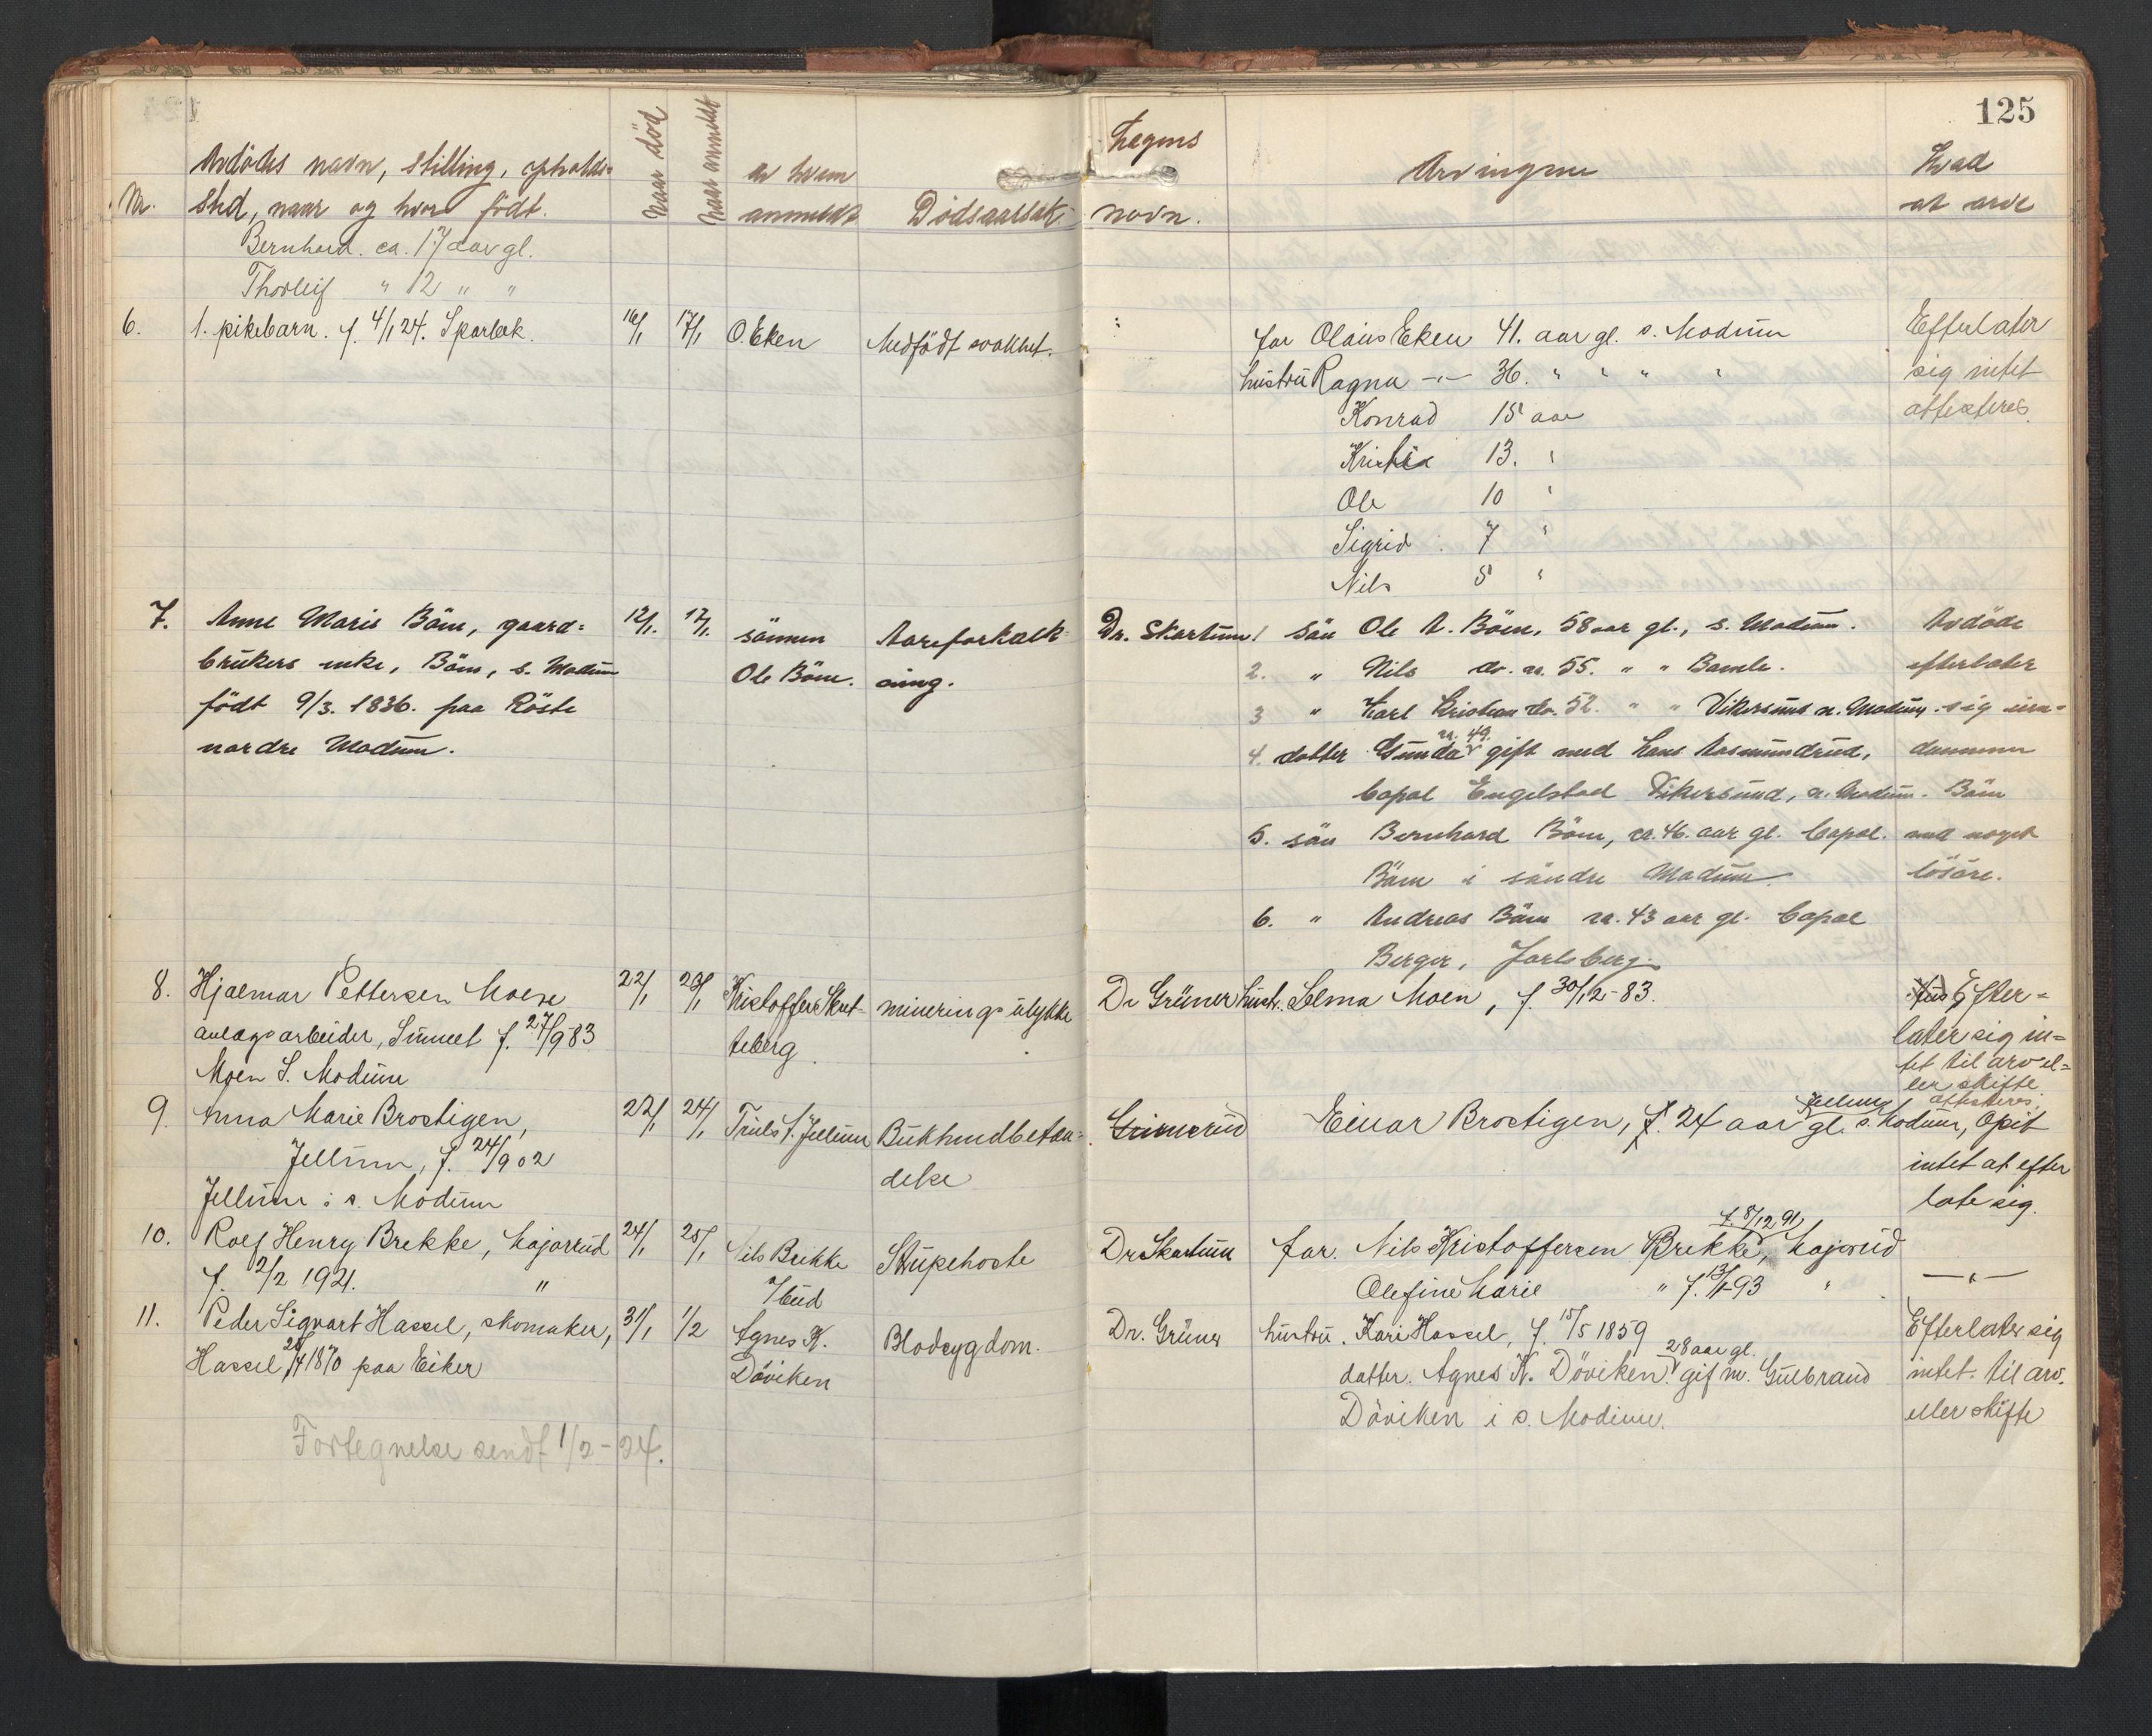 125
Nr.
Avdödes navn, stilling, opholds-
sted, naar og hvor födt.
Naar död
Naar anmeldt
av hvem
anmeldt
Dödsaarsak.
Lægens
navn.
Arvingene
Hvad
at arve
Bernhard. ca. 17 aar gl.
Thorleif " 12 " "
6. 1. pikebarn. f. 4/1 24. Sparbek. 16/1 17/1 O. Eken Medfödt svakhet.
far Olaus Eken 41. aar gl. s. Modum
hustru Ragna -"- 36. " " " "
Konrad 15 aar
Kristi 13. "
Ole 10 "
Sigrid 7 "
Nils 5 "
Efterlater
sig intet
attesteres.
7. Anne Marie Böen, gaard=
brukers enke, Böen, s. Modum
födt 9/3. 1836. paa Röste
nordre Modum.
12/1. 17/1.
sönnen
Ole Böen.
Aareforkalk-
ning.
Dr. Skartum
1 sön Ole A. Böen, 58 aar gl., s. Modum.
2. " Nils do. ca. 55. " " Bamle.
3 " Karl Kristian do. 52. " " Vikersund n. Modum.
4. datter Gunda ca. 49. gift med Hans Aasmundrud,
Copal Engelstad Vikersund, n. Modum.
5. sön Bernhard Böen, ca. 46. aar gl. Copal.
Böen i söndre Modum.
6. " Andreas Böen ca. 43 aar gl. Copal
Berger, Jarlsberg.
Avdöde
efterlater
sig een-
dommen
Böen
med noget
lösöre.
8. Hjalmar Pettersen Moen
anlagsarbeider, Simret f. 27/9 83
Moen S. Modum
22/1 23/1
Kristoffer Skut-
teberg
mineringsulykke
Dr Grüner
hustr. Selma Moen, f. 30/12-83.
Efter-
later sig in-
tet til arv el-
ler skifte
attesteres.
9. Anna Marie Brostigen,
Jellum, f. 24/9 02
Jellum i s. Modum
22/1 24/1
Truls S. Jellum
Bukhindbetæn-
delse
Grimerud
Einar Brostigen, f. 24 aar gl. Jellum s. Modum, Opit
intet at efter
late sig.
10. Rolf Henry Brekke, Majorrud
f. 2/2 1921. "
24/1 25/1
Nils Brekke
v/bud
Strupehoste
Dr Skartum
far. Nils Kristoffersen Brekke, f. 8/12 91 Majorud
Olefine Marie " f. 13/1-93 "
-"-
11. Peder Sigvart Hassel, skomaker,
Hassel 26/4 1870 paa Eiker
31/1 1/2
Agnes K.
Döviken
Blodsygdom.
Dr. Grüner
hustru. Kari Hassel, f. 15/5 1859
datter. Agnes K. Döviken. 28 aar gl. gif m. Gulbrand
Döviken i s. Modum.
Efterlater sig
intet til arv.
eller skifte
Fortegnelse sendt 1/2-24.